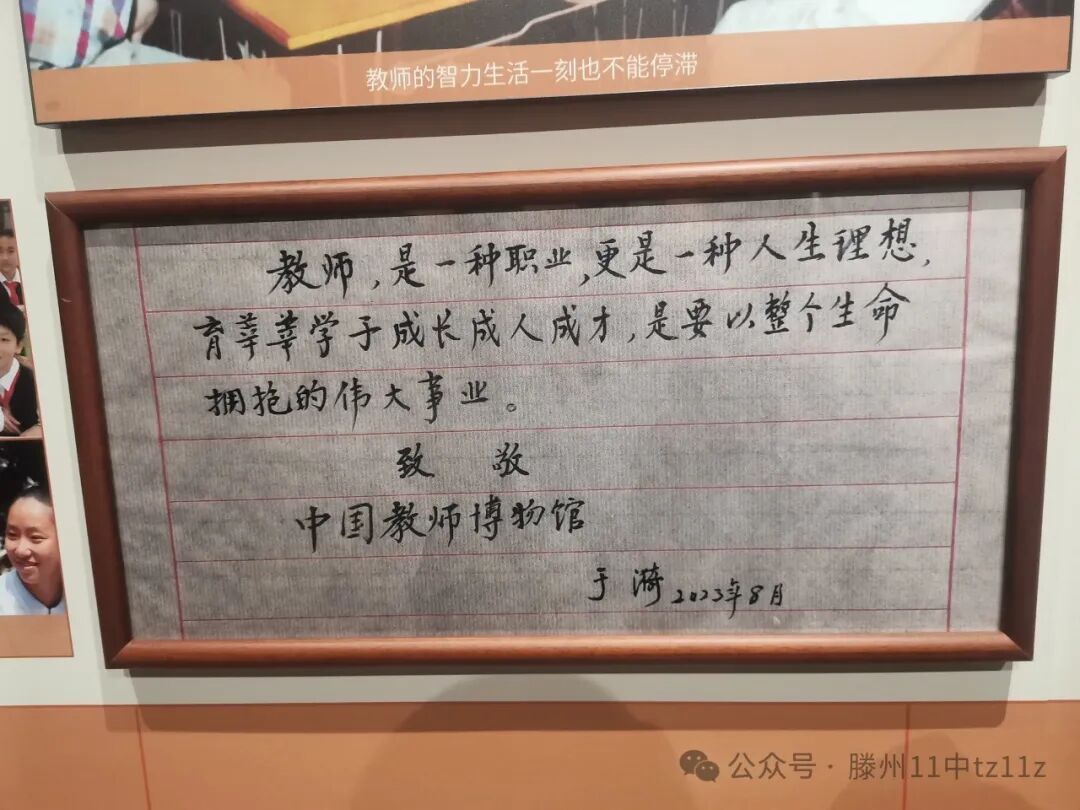 教师的智力生活一刻也不能停滞
教师，是一种职业，更是一种人生理想，
育莘莘学子成长成人成才，是要以整个生命
拥抱的伟大事业。
致 敬
中国教师博物馆
于漪 2023年8月
公众号·滕州11中tz11z